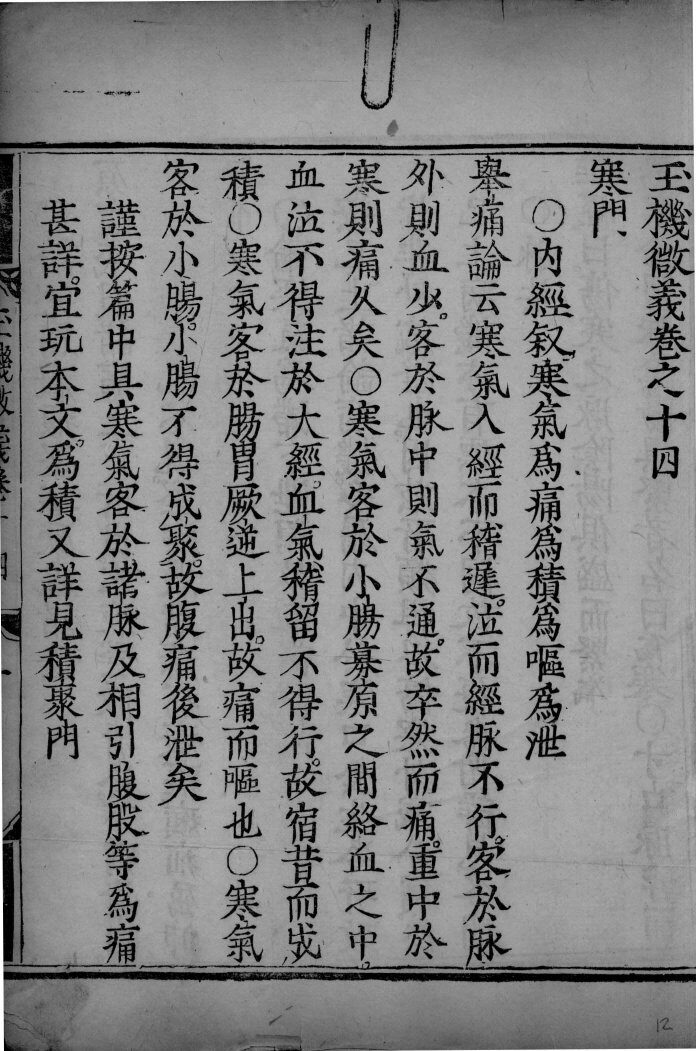 玉機微義卷之十四
寒門
○內經叙寒氣爲痛爲積爲嘔爲泄
舉痛論云寒氣入經而稽遲。泣而經脉不行。客於脉
外則血少。客於脉中則氣不通。故卒然而痛。重中於
寒則痛久矣○寒氣客於小腸募原之間絡血之中。
血泣不得注於大經。血氣稽留不得行。故宿昔而成
積○寒氣客於腸胃厥逆上出。故痛而嘔也○寒氣
客於小腸。小腸不得成聚。故腹痛後泄矣
謹按篇中具寒氣客於諸脉及相引腹股等爲痛
甚詳。宜玩本文。爲積又詳見積聚門
玉機微義卷十四
一
12